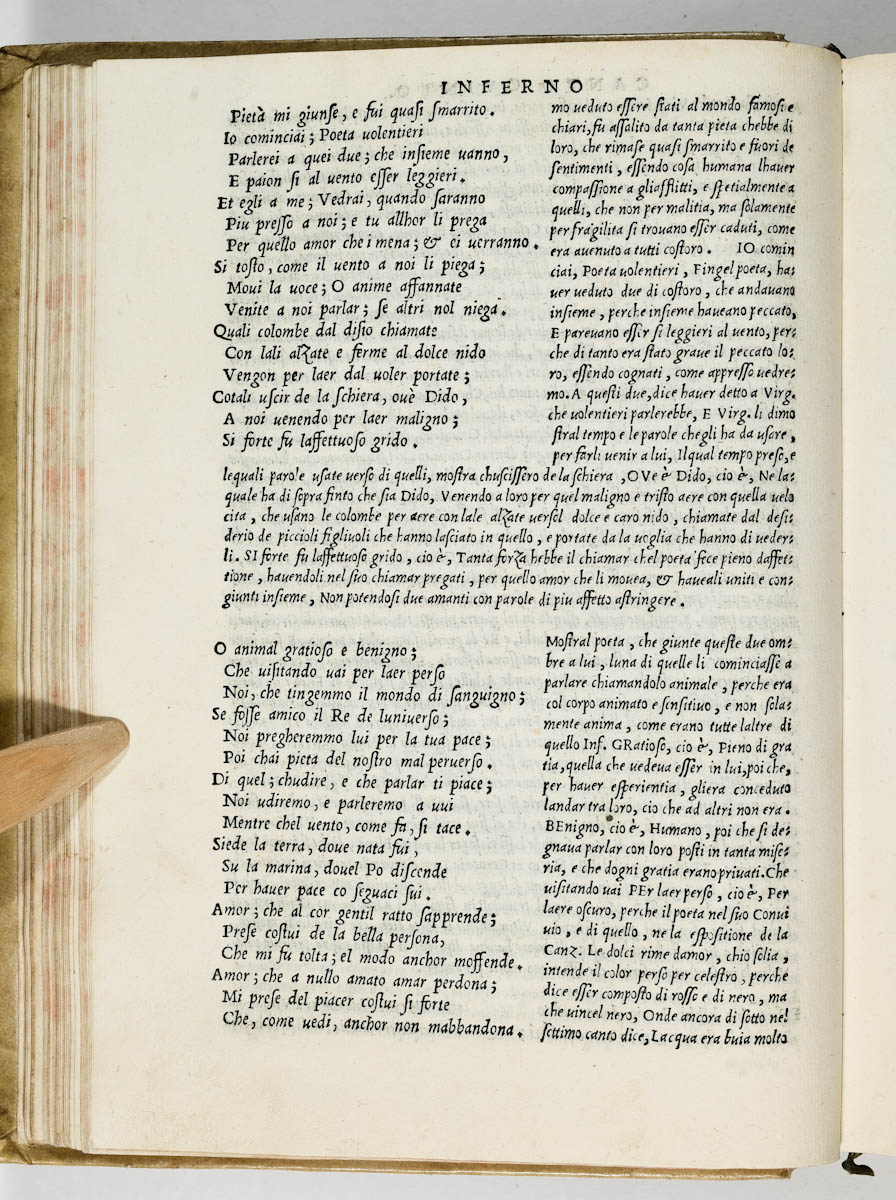 INFERNO
Pietà mi giunse, e fui quasi smarrito.
Io cominciai; Poeta uolentieri
Parlerei a quei due; che insieme uanno,
E paion si al uento esser leggieri.
Et egli a me; Vedrai, quando saranno
Piu presso a noi; e tu allhor li prega
Per quello amor che i mena; & ei uerranno.
Si tosto, come il uento a noi li piega;
Moui la uoce; O anime affannate
Venite a noi parlar; se altri nol niega.
Quali colombe dal disio chiamate
Con lali alzate e ferme al dolce nido
Vengon per laer dal uoler portate;
Cotali uscir de la schiera, ouè Dido,
A noi uenendo per laer maligno;
Si forte fu laffettuoso grido.
mo ueduto essere stati al mondo famosi e
chiari, fu assalito da tanta pieta chebbe di
loro, che rimase quasi smarrito e fuori de
sentimenti, essendo cosa humana lhauer
compassione a gliafflitti, e spetialmente a
quelli, che non per malitia, ma solamente
per fragilita si trouano esser caduti, come
era auenuto a tutti costoro. IO comin
ciai, Poeta uolentieri, Fingel poeta, ha-
uer ueduto due di costoro, che andauano
insieme, perche insieme haueano peccato,
E pareuano esser si leggieri al uento, per-
che di tanto era stato graue il peccato lo-
ro, essendo cognati, come appresso uedre-
mo. A questi due, dice hauer detto a Virg.
che uolentieri parlerebbe, E Virg. li dimo
stral tempo e le parole chegli ha da usare,
per farli uenir a lui, Il qual tempo preso, e
lequali parole usate uerso di quelli, mostra chuscissero de la schiera, OVe è Dido, cio è, Ne la-
quale ha di sopra finto che sia Dido, Venendo a loro per quel maligno e tristo aere con quella uelo
cita, che usano le colombe per aere con lale alzate uersol dolce e caro nido, chiamate dal desi-
derio de piccioli figliuoli che hanno lasciato in quello, e portate da la uoglia che hanno di ueder-
li. SI forte fu laffettuoso grido, cio è, Tanta forza hebbe il chiamar chel poeta fece pieno daffet-
tione, hauendoli nel suo chiamar pregati, per quello amor che li mouea, & haueali uniti e con-
giunti insieme, Non potendosi due amanti con parole di piu affetto astringere.
O animal gratioso e benigno;
Che uisitando uai per laer perso
Noi, che tingemmo il mondo di sanguigno;
Se fosse amico il Re de luniuerso;
Noi pregheremmo lui per la tua pace;
Poi chai pieta del nostro mal peruerso.
Di quel; chudire, e che parlar ti piace;
Noi udiremo, e parleremo a uui
Mentre chel uento, come fa, si tace.
Siede la terra, doue nata fui,
Su la marina, douel Po discende
Per hauer pace co seguaci sui.
Amor; che al cor gentil ratto sapprende;
Prese costui de la bella persona,
Che mi fu tolta; el modo anchor moffende.
Amor; che a nullo amato amar perdona;
Mi prese del piacer costui si forte
Che, come uedi, anchor non mabbandona.
Mostral poeta, che giunte queste due om-
bre a lui, luna di quelle li cominciasse a
parlare chiamandolo animale, perche era
col corpo animato e sensitiuo, e non sola-
mente anima, come erano tutte laltre di
quello Inf. GRatioso, cio è, Pieno di gra
tia, quella che uedeua esser in lui, poi che,
per hauer esperientia, gliera conceduto
landar tra loro, cio che ad altri non era.
BEnigno, cio è, Humano, poi che si de-
gnaua parlar con loro posti in tanta mise-
ria, e che dogni gratia erano priuati. Che
uisitando uai PEr laer perso, cio è, Per
laere oscuro, perche il poeta nel suo Conui
uio, e di quello, ne la espositione de la
Canz. Le dolci rime damor, chio solia,
intende il color perso per celestro, perche
dice esser composto di rosso e di nero, ma
che uincel nero, Onde ancora di sotto nel
settimo canto dice, Lacqua era buia molto